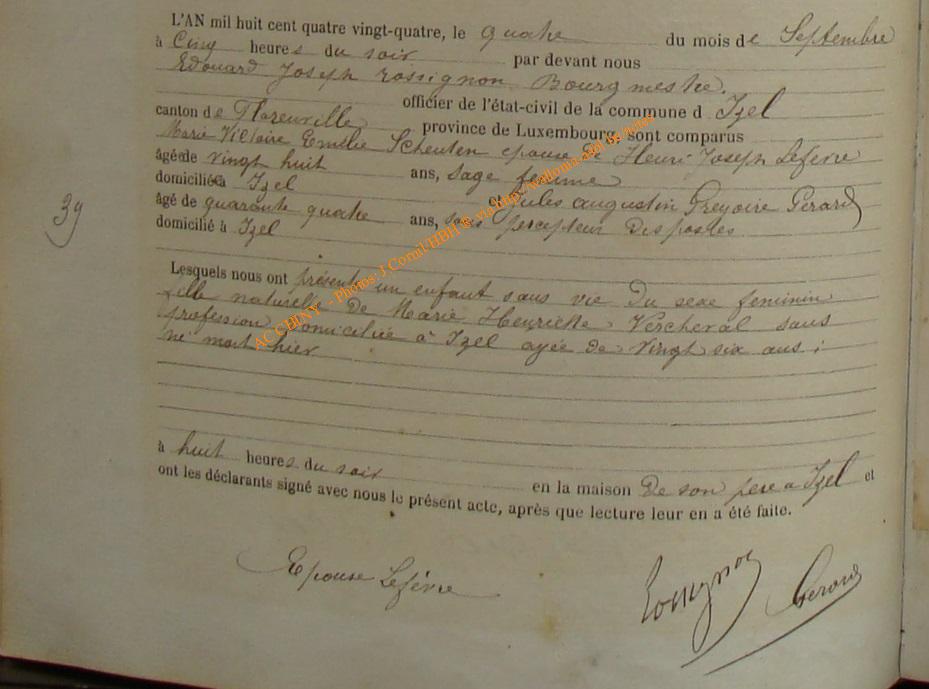 L'AN mil huit cent quatre vingt-quatre, le quatre du mois de Septembre
à Cinq heures du soir par devant nous
Edouard Joseph Rossignon Bourgmestre.
officier de l'état-civil de la commune d Izel
canton de Florenville province de Luxembourg, sont comparus
Marie Victoire Emélie Scheuten epouse de Henri Joseph Lefevre
âgée de vingt huit ans, sage femme
domiciliée à Izel et Jules augustin Gregoire Gerard
âgé de quarante quatre ans, sous percepteur des postes
domicilié à Izel
39
Lesquels nous ont présenté un enfant sans vie du sexe feminin
fille naturelle de Marie Henriette Vercheval sans
profession domiciliée à Izel agée de vingt six ans ;
né mort hier
à huit heures du soir en la maison de son pere a Izel et
ont les déclarants signé avec nous le présent acte, après que lecture leur en a été faite.
Epouse Lefèvre Rossignon Gerard
ACCHINY - Photos: J Cornil-HBH @ via http://wallonia.asbl.be/actes